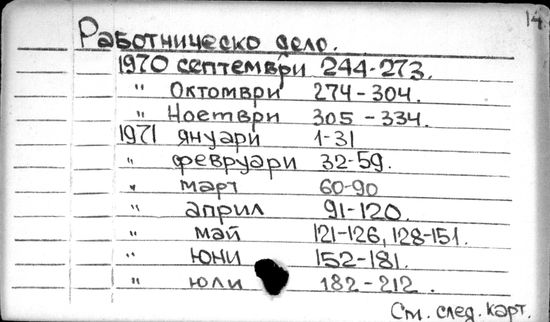 14
Работническо дело.
1970 септември 244-273.
" Октомври 274-304.
" Ноември 305-334.
1971 януари 1-31
" февруари 32-59.
" март 60-90
" април 91-120.
" май 121-126, 128-151.
" юни 152-181.
" юли 182-212.
См. след. карт.